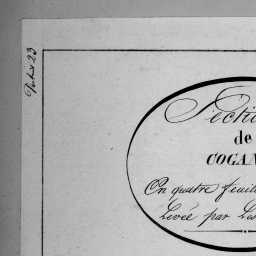 Sectio
de
COGAN
En quatre feuill
Levée par Les